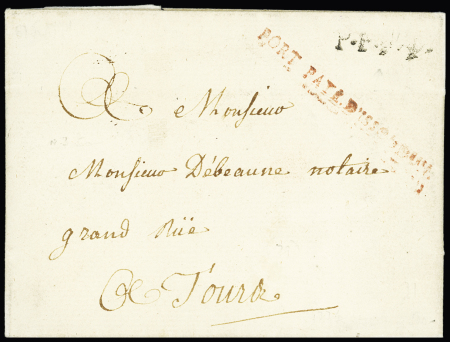 P.E.4.
PORT PAYÉ
A Monsieur
Monsieur Débeaune notaire
grand Rüe
A Tours